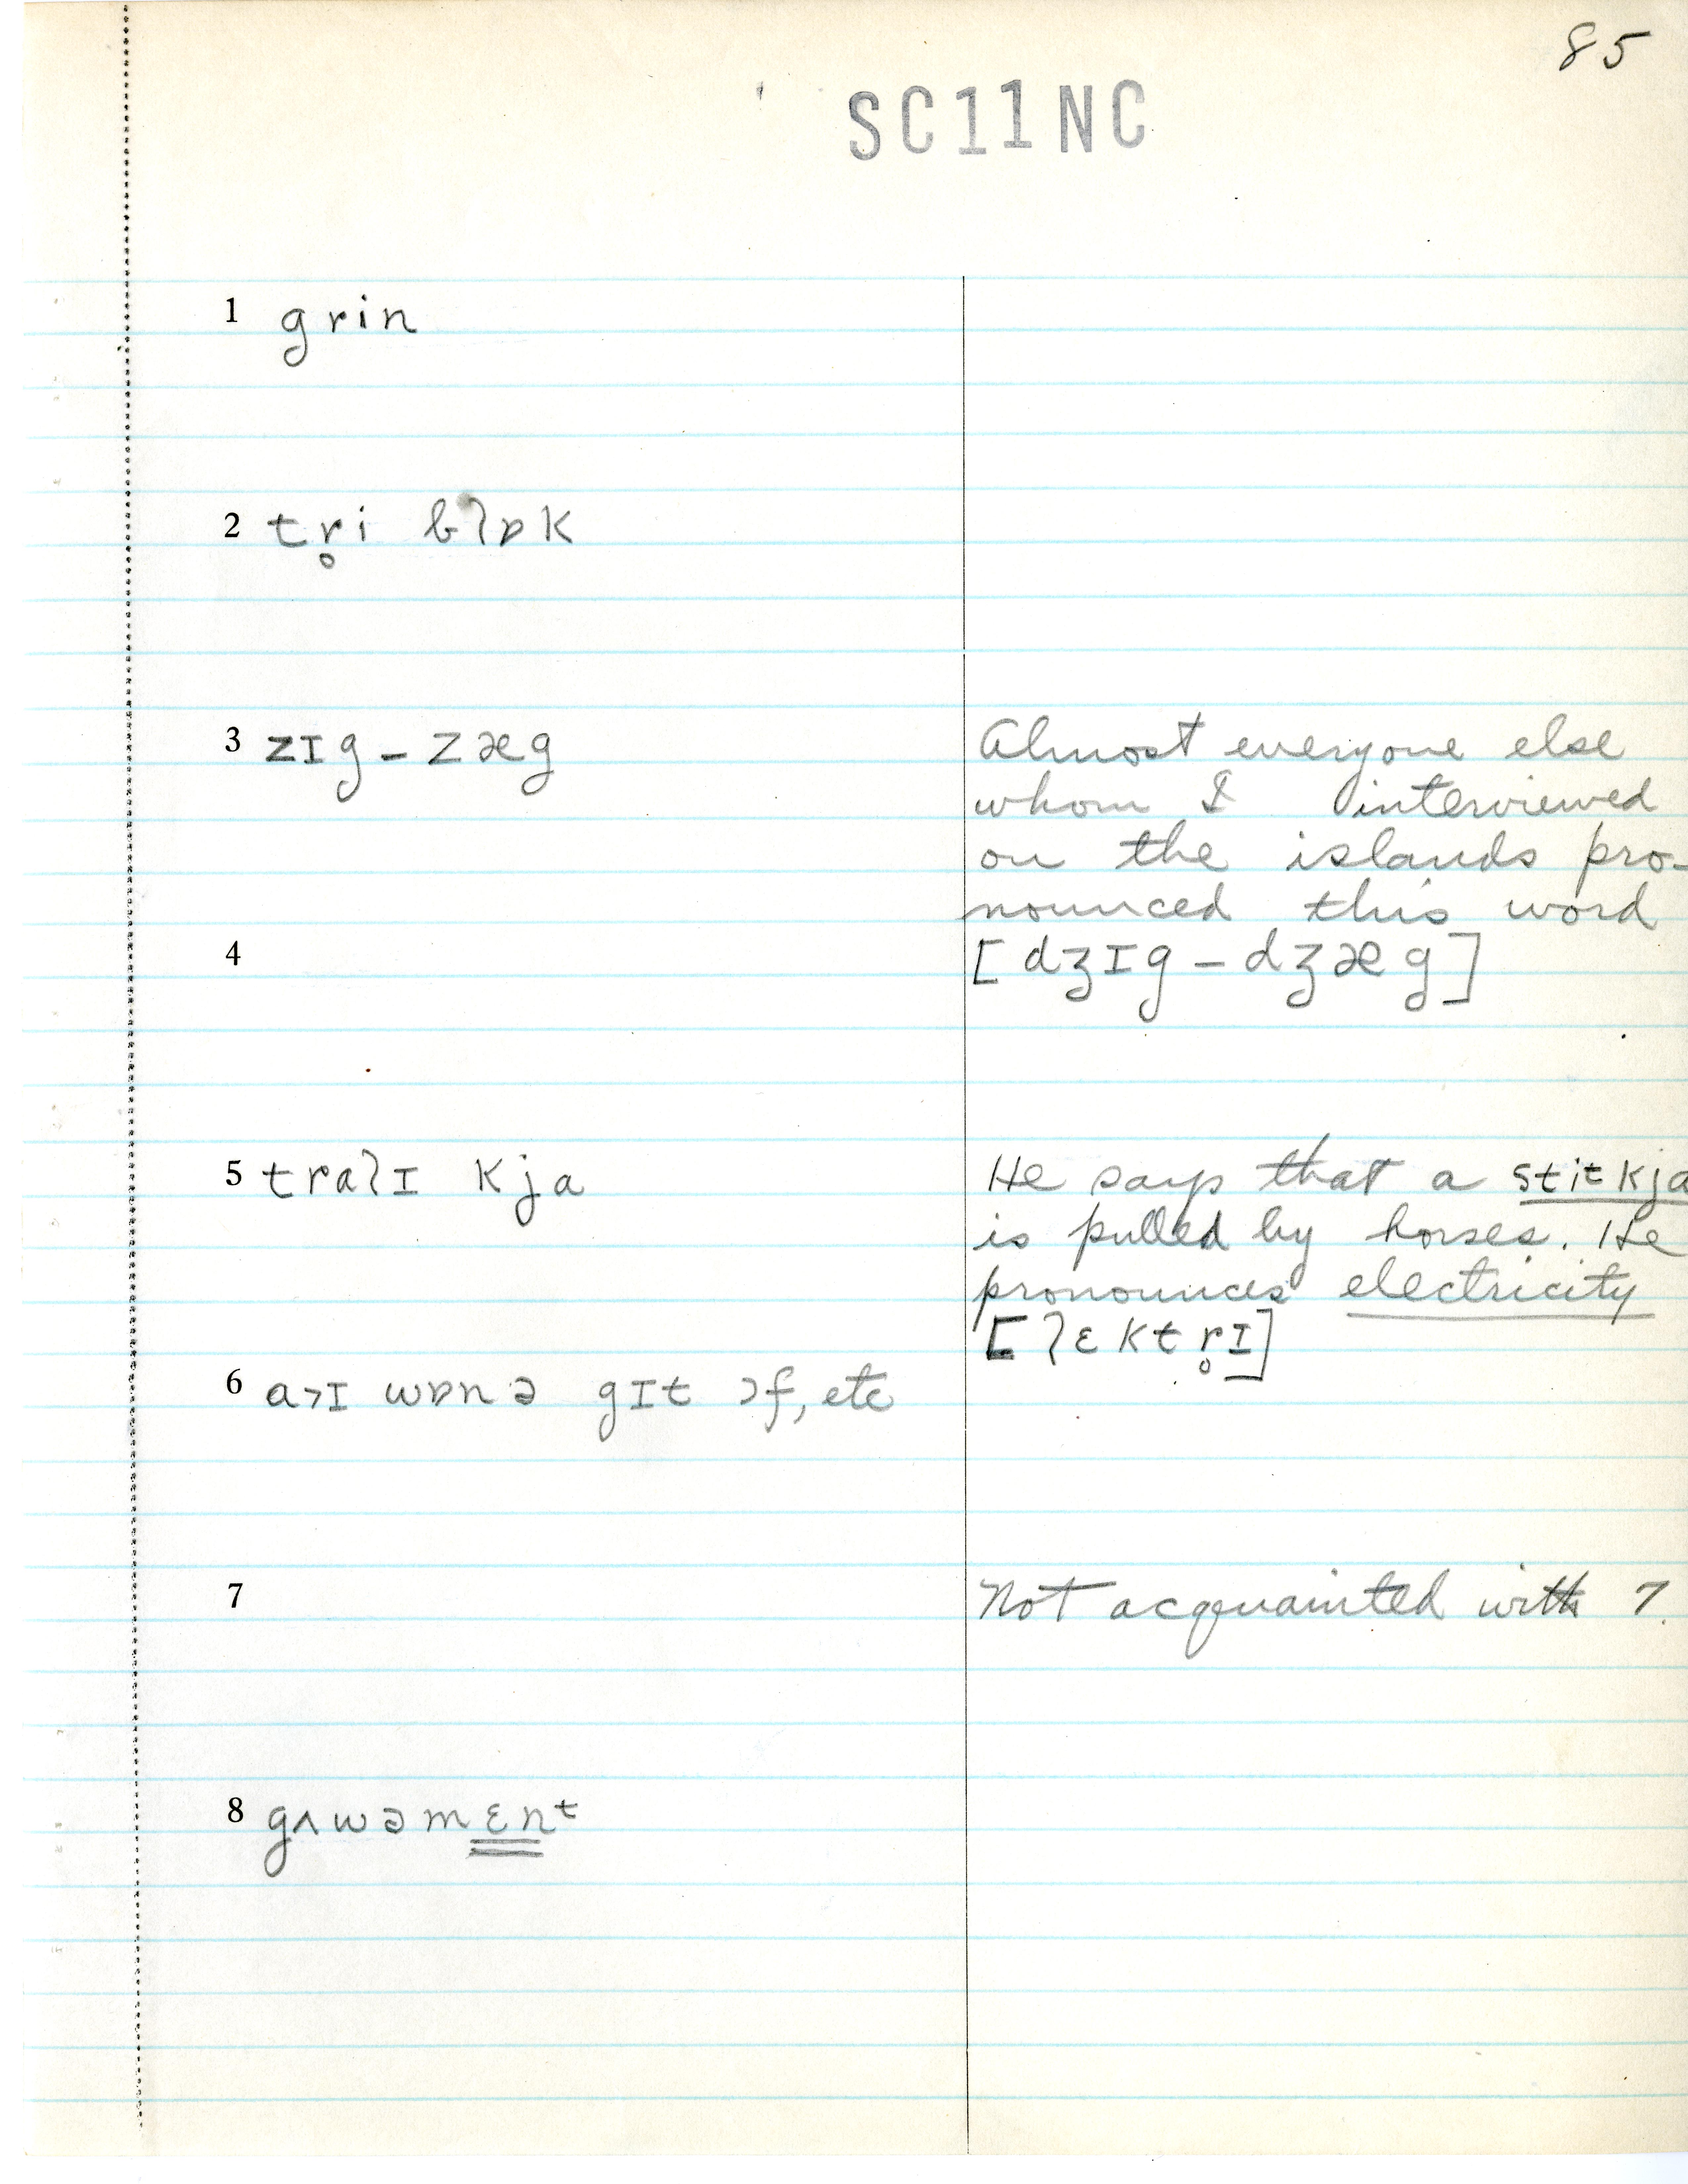 85
SC11NC
1 grin
2 tr̥i blɒk
3 zɪg – zæg
Almost everyone else
whom I interviewed
on the islands pro-
nounced this word
4
[dʒɪg – dʒæg]
5 tralɪ kja
He says that a stitkja
is pulled by horses. He
pronounces electricity
[lɛktr̥ɪ]
6 a˃ɪ wɒnə gɪt ɔf, etc
7
Not acquainted with 7.
8 gʌwəmɛnᵗ